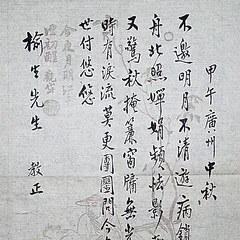 甲午廣州中秋
不邀明月不清遊病鎖
舟北照嬋娟頻怯影
又驚秋掩簾窗牖無光
時有淚流莫更團圞問今
世付悠悠
榆生先生 教正